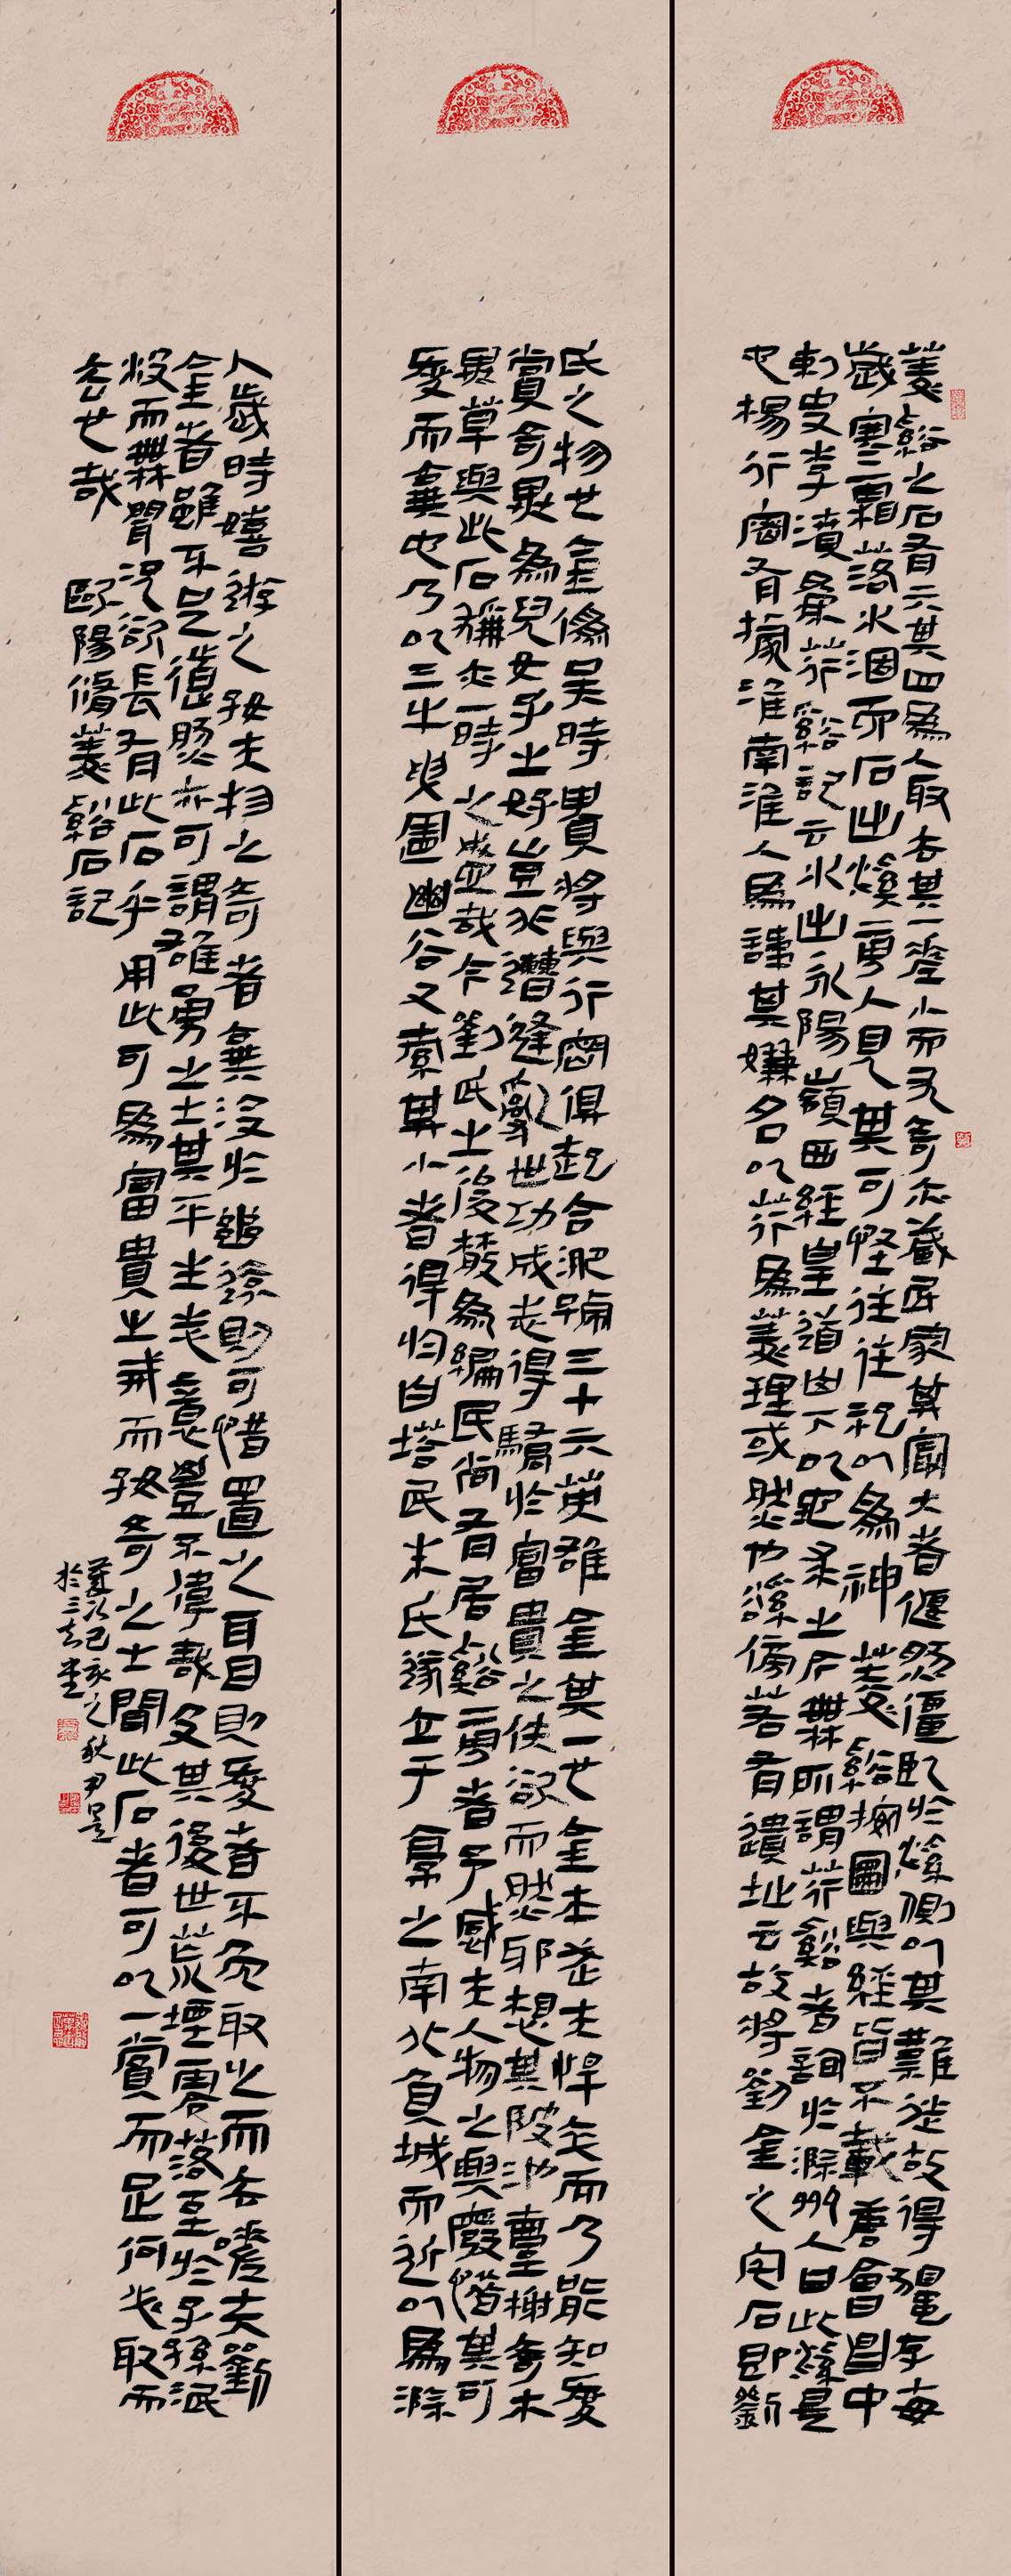 菱谿之石有六其四爲人取去其一差小而尤奇亦藏民家其最大者偃然僵臥於溪側以其難徙故得獨存每
歲寒霜落水涸而石出溪旁人見其可怪往往祀以爲神菱谿按圖與經皆不載唐會昌中
刺史李濆爲荇谿記云水出永陽嶺西經皇道山下以地求之今無所謂荇谿者詢於滁州人曰此溪是
也楊行密有據淮南淮人爲諱其嫌名以荇爲菱理或然也溪傍若有遺址云故將劉金之宅石即劉
氏之物也金僞吳時貴將與行密俱起合淝號三十六英雄金其一也金本武夫悍卒而乃能知愛
賞奇異爲兒女子之好豈非遭逢亂世功成志得驕於富貴之佚欲而然邪想其陂池臺榭奇木
異草與此石稱亦一時之盛哉今劉氏之後散爲編民尚有居谿旁者予感夫人物之興廢惜其可
愛而棄也乃以三牛曳置幽谷又索其小者得於白塔民朱氏遂立于亭之南北負城而近以爲滁
人歲時嬉遊之好夫物之奇者棄沒於幽遠則可惜置之耳目則愛者不免取之而去嗟夫劉
金者雖不足道然亦可謂雄勇之士其平生志意豈不偉哉及其後世荒堙零落至於子孫泯
沒而無聞況欲長有此石乎用此可爲富貴之戒而好奇之士聞此石者可以一賞而足何必取而
去也哉 歐陽脩菱谿石記
己亥之秋尹
於三堂